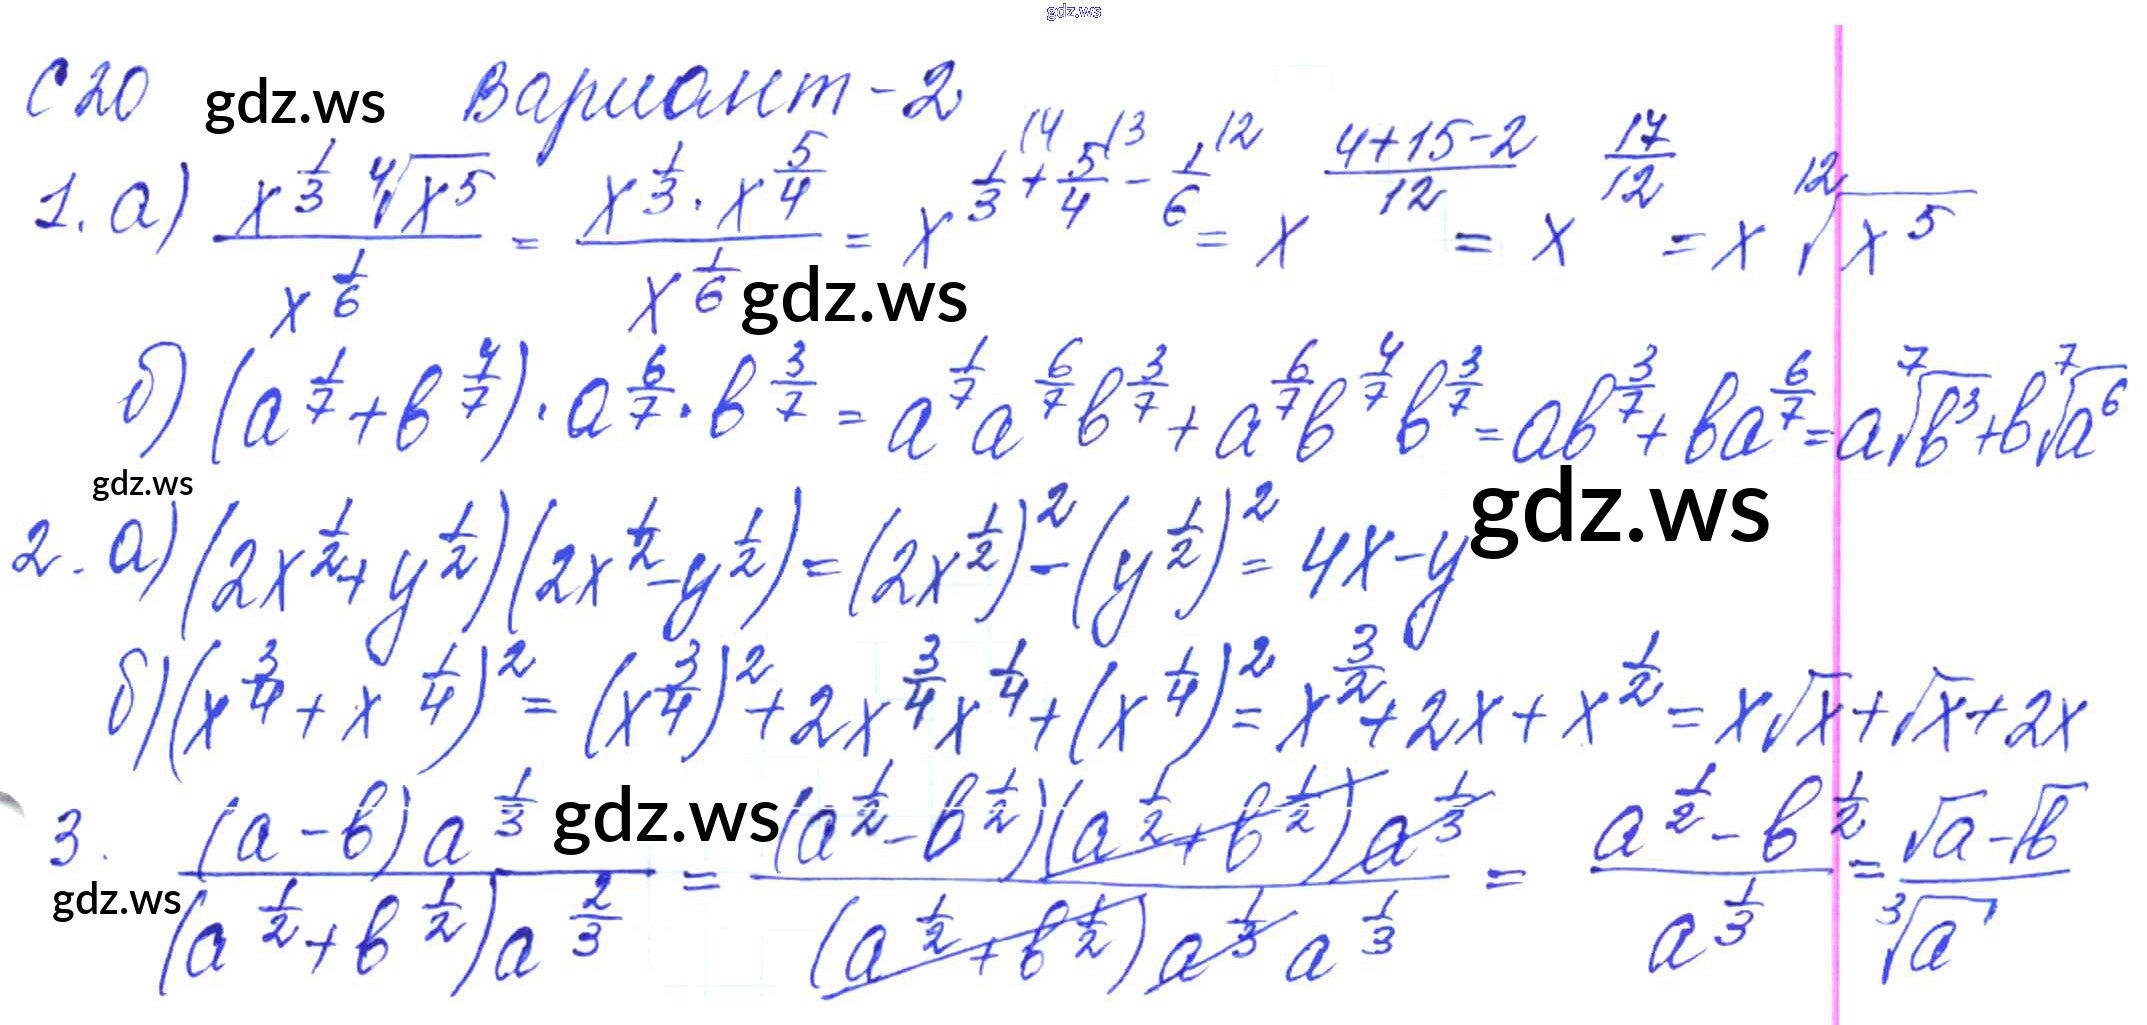 gdz.ws
С20 gdz.ws Вариант-2
1. а) \frac{x^{\frac{1}{3}} \sqrt[4]{x^5}}{x^{\frac{1}{6}}} = \frac{x^{\frac{1}{3}} \cdot x^{\frac{5}{4}}}{x^{\frac{1}{6}}} = x^{\frac{1}{3}^{(4} + \frac{5}{4}^{(3} - \frac{1}{6}^{(2}} = x^{\frac{4+15-2}{12}} = x^{\frac{17}{12}} = x \sqrt[12]{x^5}
gdz.ws
б) (a^{\frac{1}{7}} + b^{\frac{4}{7}}) \cdot a^{\frac{6}{7}} \cdot b^{\frac{3}{7}} = a^{\frac{1}{7}} a^{\frac{6}{7}} b^{\frac{3}{7}} + a^{\frac{6}{7}} b^{\frac{4}{7}} b^{\frac{3}{7}} = ab^{\frac{3}{7}} + ba^{\frac{6}{7}} = a\sqrt[7]{b^3} + b\sqrt[7]{a^6}
gdz.ws gdz.ws
2. а) (2x^{\frac{1}{2}} + y^{\frac{1}{2}})(2x^{\frac{1}{2}} - y^{\frac{1}{2}}) = (2x^{\frac{1}{2}})^2 - (y^{\frac{1}{2}})^2 = 4x - y
б) (x^{\frac{3}{4}} + x^{\frac{1}{4}})^2 = (x^{\frac{3}{4}})^2 + 2x^{\frac{3}{4}} x^{\frac{1}{4}} + (x^{\frac{1}{4}})^2 = x^{\frac{3}{2}} + 2x + x^{\frac{1}{2}} = x\sqrt{x} + \sqrt{x} + 2x
3. \frac{(a-b)a^{\frac{1}{3}}}{(a^{\frac{1}{2}} + b^{\frac{1}{2}})a^{\frac{2}{3}}} = \frac{(a^{\frac{1}{2}} - b^{\frac{1}{2}})(a^{\frac{1}{2}} + b^{\frac{1}{2}})a^{\frac{1}{3}}}{(a^{\frac{1}{2}} + b^{\frac{1}{2}})a^{\frac{1}{3}} a^{\frac{1}{3}}} = \frac{a^{\frac{1}{2}} - b^{\frac{1}{2}}}{a^{\frac{1}{3}}} = \frac{\sqrt{a} - \sqrt{b}}{\sqrt[3]{a}}
gdz.ws
gdz.ws